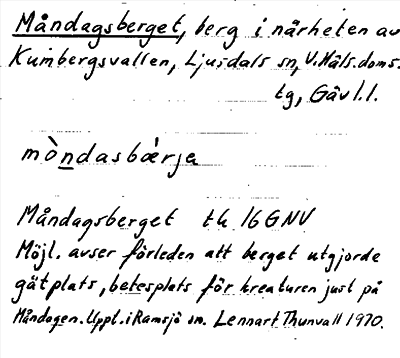 Måndagsberget, berg i närheten av
Kumbergsvallen, Ljusdals sn, V. Häls. doms.
tg, Gävl. l.
mòndasbærje
Måndagsberget tk 16GNV
Möjl. avser förleden att berget utgjorde
gätplats, betesplats för kreaturen just på
Måndagen. Uppt. i Ramsjö sn. Lennart Thunvall 1970.